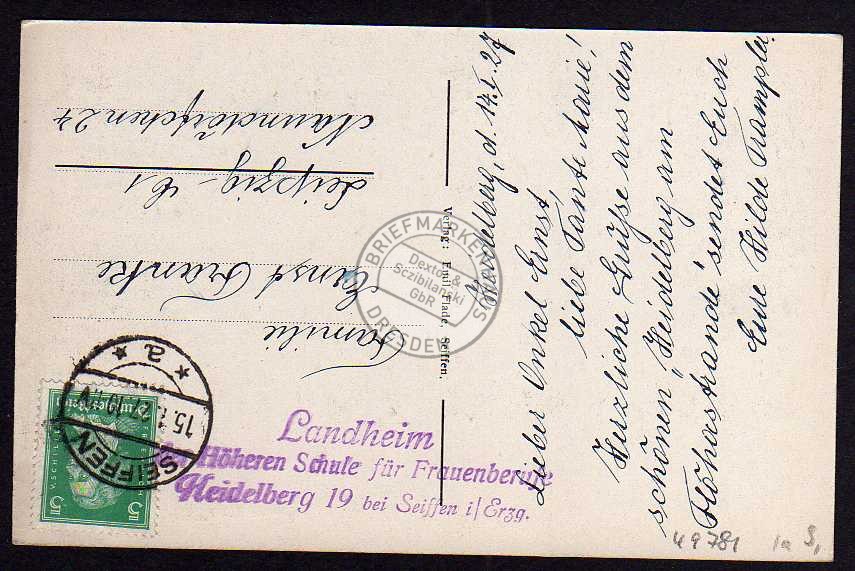 Heidelberg, d. 14.I.27
Lieber Onkel Ernst,
liebe Tante Marie!
Herzliche Grüße aus dem
schönen „Heidelberg am
Flöhastrande" sendet Euch
Eure Hilde Trampler.
Familie
Ernst Franke
Leipzig - C1
Naundörfchen 24
Verlag: Emil Flade, Seiffen.
Landheim
der Höheren Schule für Frauenberufe
Heidelberg 19 bei Seiffen i/Erzg.
SEIFFEN
15.1.27
* a *
Deutsches Reich
F. V. SCHILLER
5 5
BRIEFMARKEN
Dexter &
Sczibilanski
GbR
DRESDEN
49781 1a S,